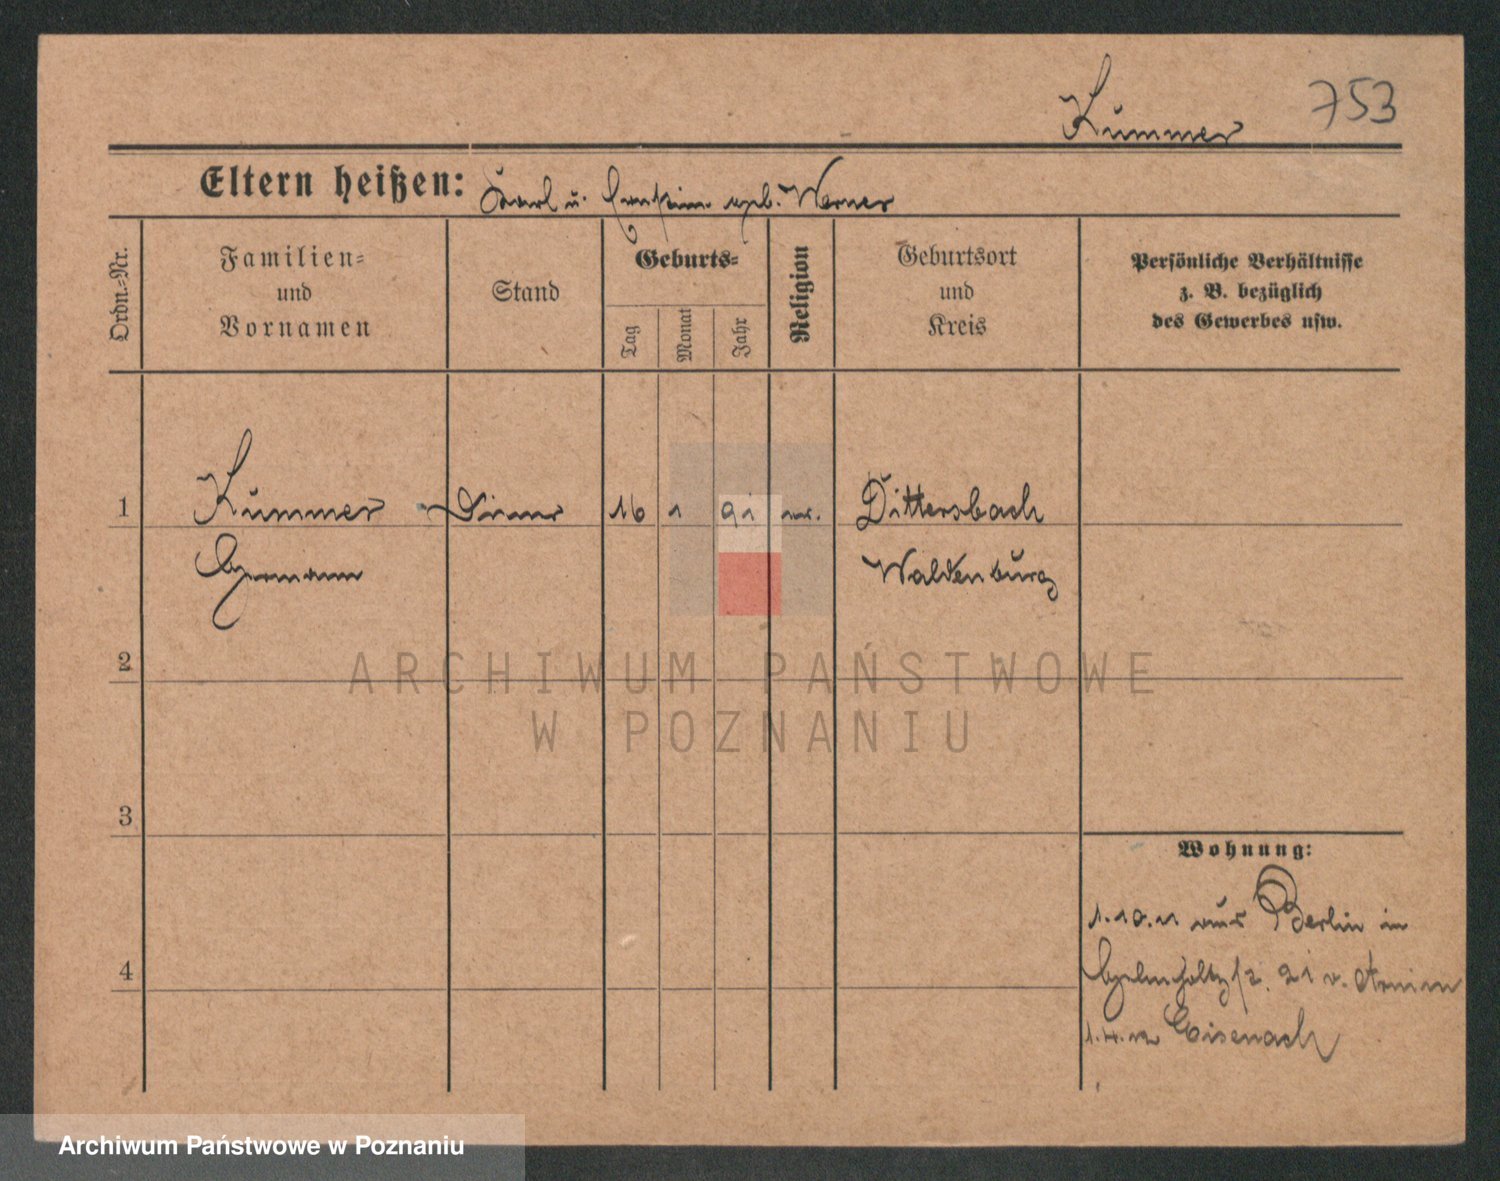 753
Kummer
Eltern heißen: Karl u. geb. Werner
Ordn.=Nr.
Familien=
und
Vornamen
Stand
Geburts=
Tag
Monat
Jahr
Religion
Geburtsort
und
Kreis
Persönliche Verhältnisse
z. B. bezüglich
des Gewerbes usw.
1 Kummer Diener 16 1 91 Dittersbach
Hermann Waldenburg
2
ARCHIWUM PAŃSTWOWE
W POZNANIU
3
Wohnung:
1.10.11 aus Berlin in
4
Helmholtzstr. 21 v. Arnim
1.4.12 Eisenach
Archiwum Państwowe w Poznaniu